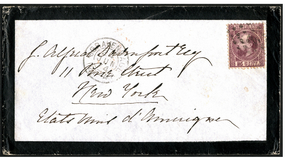 J. Alfred Davenport Esq
11 Pine Street
New York
Etats Unis d'Amerique